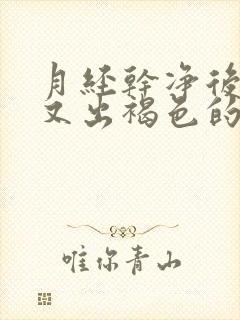 月经幹净後
又出褐色的
唯你青山